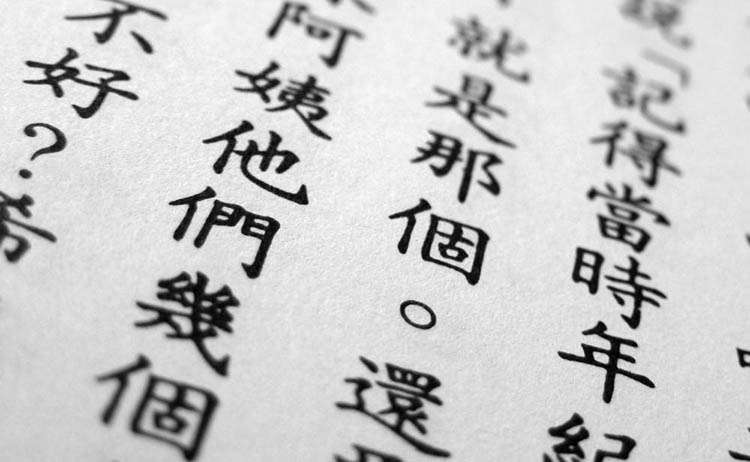 說「記得當時年紀
就是那個。還
阿姨他們幾個
不好？希